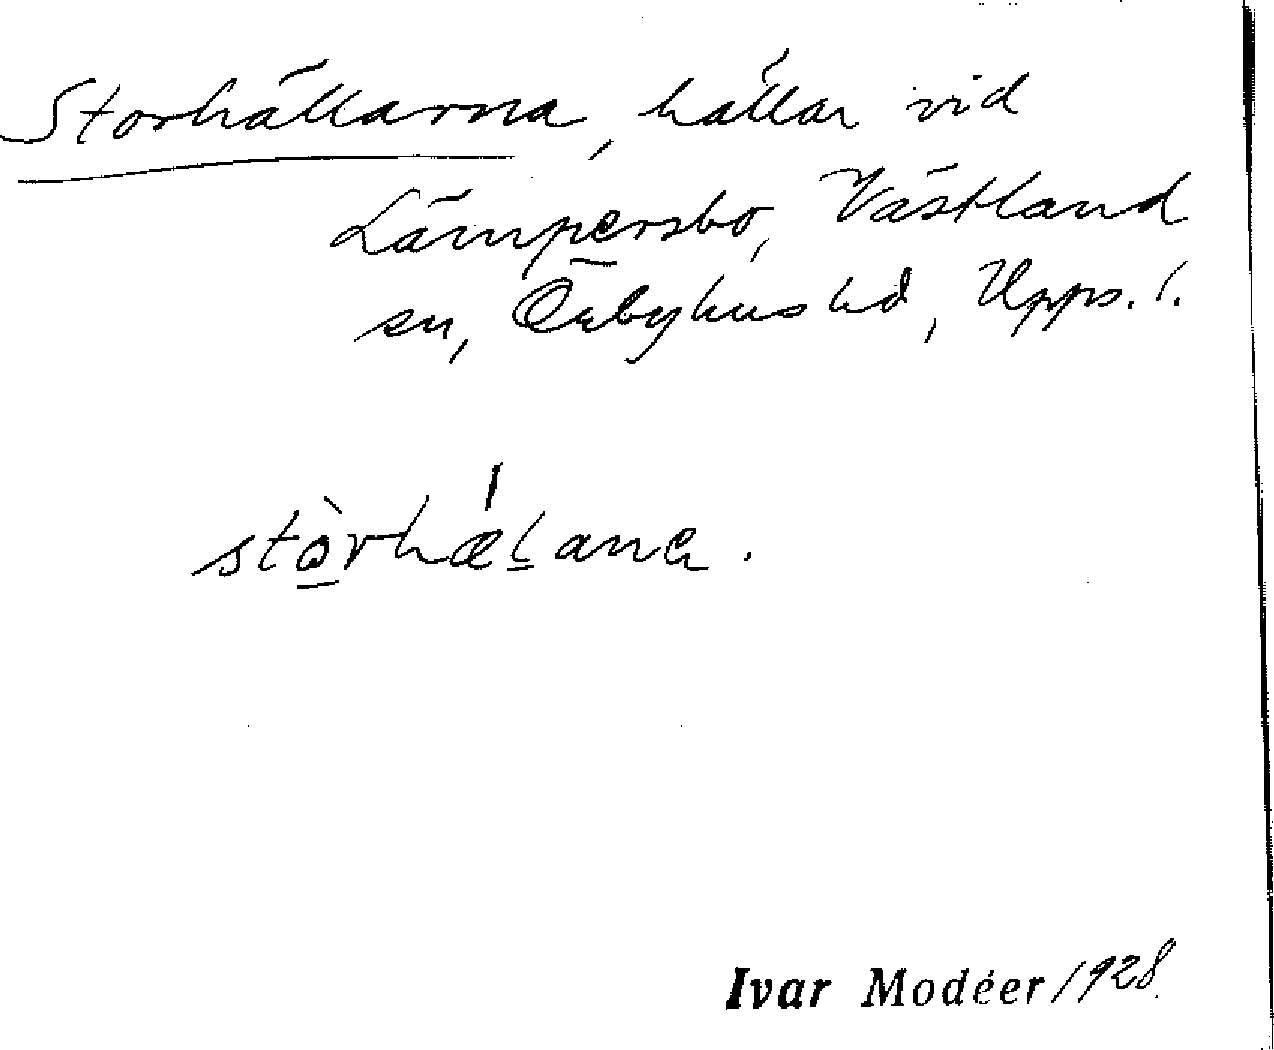 Storhällarna, hällar vid
Lämpersbo, Västland
sn, Örbyhus hd, Upps. l.
stòrhæ̀lana.
Ivar Modéer/1928.